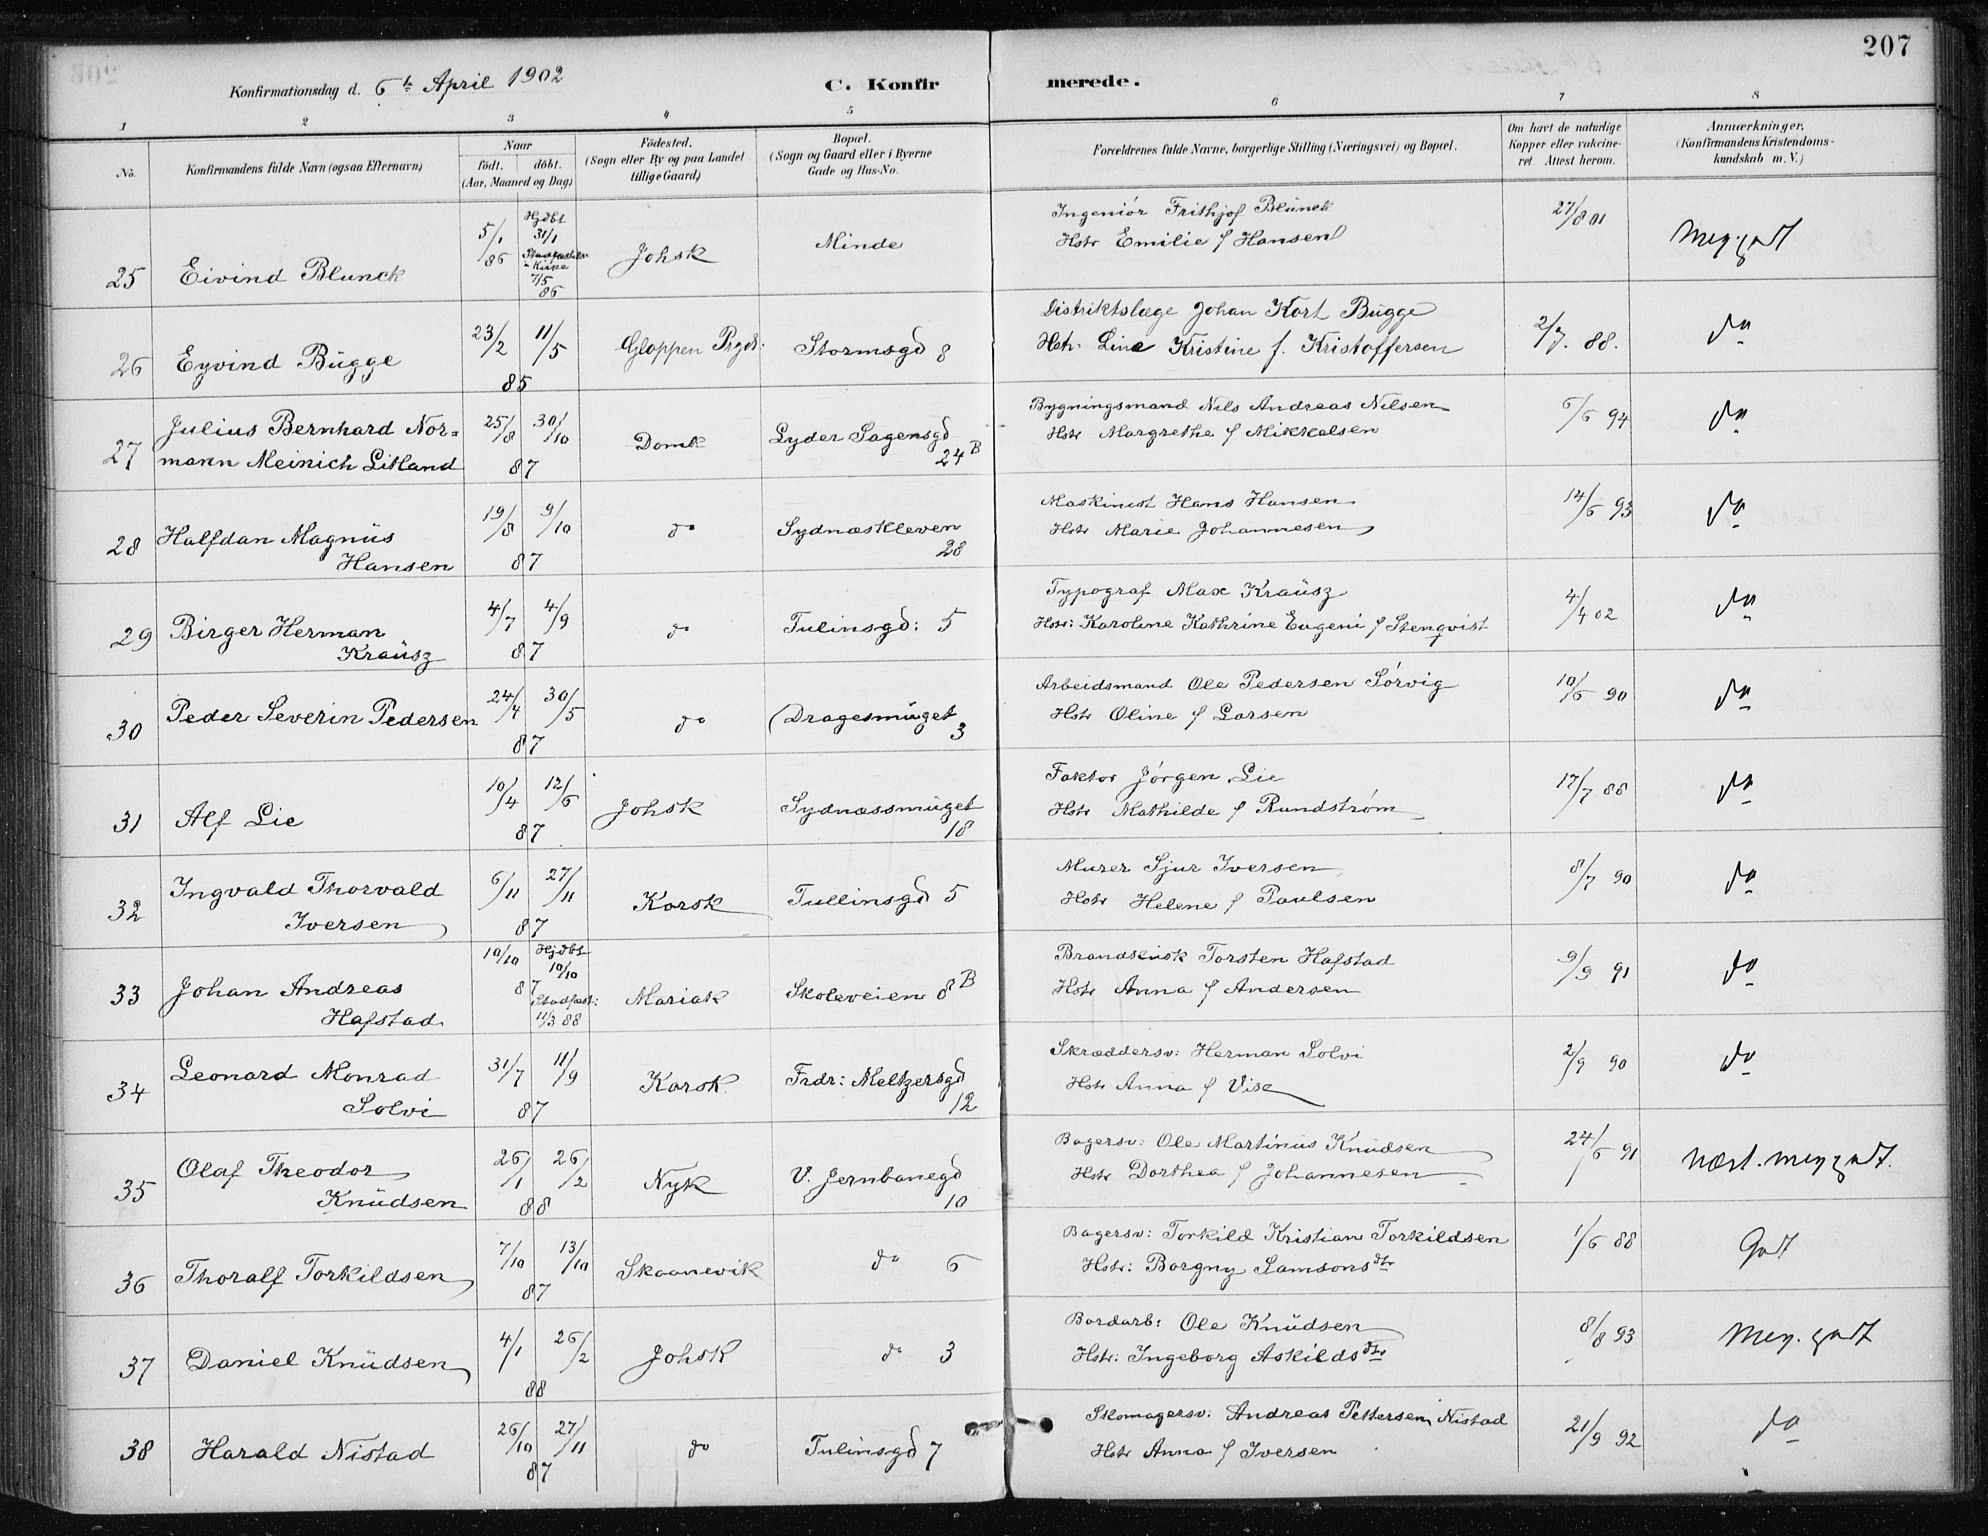 207
Konfirmationsdag d. 6te April 1902
C. Konfirmerede.
1 2 3 4 5 6 7 8
No. Konfirmandens fulde Navn (ogsaa Efternavn) Naar Födt. döbt. (Aar, Maaned og Dag) Födested. (Sogn eller By og paa Landet tillige Gaard) Bopæl. (Sogn og Gaard eller i Byerne Gade og Hus-No. Forældrenes fulde Navne, borgerlige Stilling (Næringsvei) og Bopæl. Om havt de naturlige Kopper eller vakcineret. Attest herom. Anmærkninger. (Konfirmandens Kristendomskundskab m. V.)
25 Eivind Blunck 5/1 86 Hjdbt 31/1 Kirke 7/5 86 Johsk Minde Ingeniør Frithjof Blünck 27/8 01 Meg. godt
Hstr Emilie f Hansen
26 Eyvind Bügge 23/2 11/5 85 Gloppen Prgd: Stormsgd 8 Distriktslæge Johan Kort Bügge 2/7. 88. do
Hstr. Line Kristine f. Kristoffersen
27 Julius Bernhard Nor= 25/8 30/10 Domk Lyder Sagensgd Bygningsmand Nils Andreas Nilsen 6/6 94 do
mann Meinich Litland 87 24 B Hstr Margrethe f Mikkelsen
28 Halfdan Magnüs 19/8 9/10 do Sydnæskleven Maskinist Hans Hansen 14/6 93 do
Hansen 87 28 Hstr Marie Johannesen
29 Birger Herman 4/7 4/9 do Tulinsgd: 5 Typograf Max Kraüsz 4/4 02 do
Kraüsz 87 Hstr: Karoline Kathrine Eugeni f Stenqvist
30 Peder Severin Pedersen 24/4 30/5 do Dragesmüget Arbeidsmand Ole Pedersen Sörvig 10/6 90 do
87 3 Hstr Oline f Larsen
31 Alf Lie 10/4 12/6 Johsk Sydnæssmüget Faktor Jörgen Lie 17/7 88 do
87 18 Hstr Mathilde f Rundström
32 Ingvald Thorvald 6/11 27/11 Korsk Tullinsgd 5 Murer Sjur Iversen 8/7 90 do
Iversen 87 Hstr Helene f Paulsen
33 Johan Andreas 10/10 87 Hjdbt 10/10 Mariak Skoleveien 8 B Torsten Hafstad 9/9 91 do
Hafstad Stadfæst: 11/3 88 Hstr Anna f Andersen
34 Leonard Monrad 31/7 11/9 Korsk Frdr: Meltzersgd Skræddersv: Herman Solvi 2/9 90 do
Solvi 87 12 Hstr Anna f Vise
35 Olaf Theodor 26/1 26/2 Nyk V. Jernbanegd Bagersv: Ole Martinus Knüdsen 24/6 91 Næst. meg godt.
Knüdsen 88 10 Hstr Dorthea f Johannesen
36 Thoralf Torkildsen 7/10 13/10 Skaanevik do 6 Bagersv: Torkild Kristian Torkildsen 1/6 88 Godt
87 Hstr: Borgny Samsonsdtr
37 Daniel Knüdsen 4/1 26/2 Johsk do 3 Bordarb: Ole Knüdsen 8/8 93 Meg. godt
88 Hstr: Ingeborg Askildsdtr
38 Harald Nistad 26/10 27/11 do Tulinsgd 7 Skomagersv: Andreas Pettersen Nistad 21/9 92 do
87 Hstr Anna f Iversen